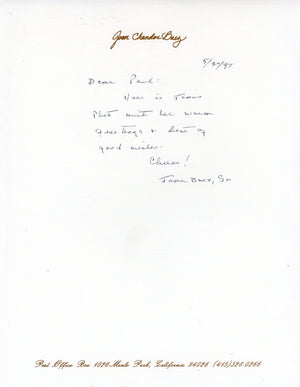 Joan Chandos Baez
5/20/94
Dear Paul:
Here is
with her warm
greetings & best of
good wishes.
Cheers!
Joan Baez, Sr
Post Office Box 1026 Menlo Park, California 94026 (415) 328-0266